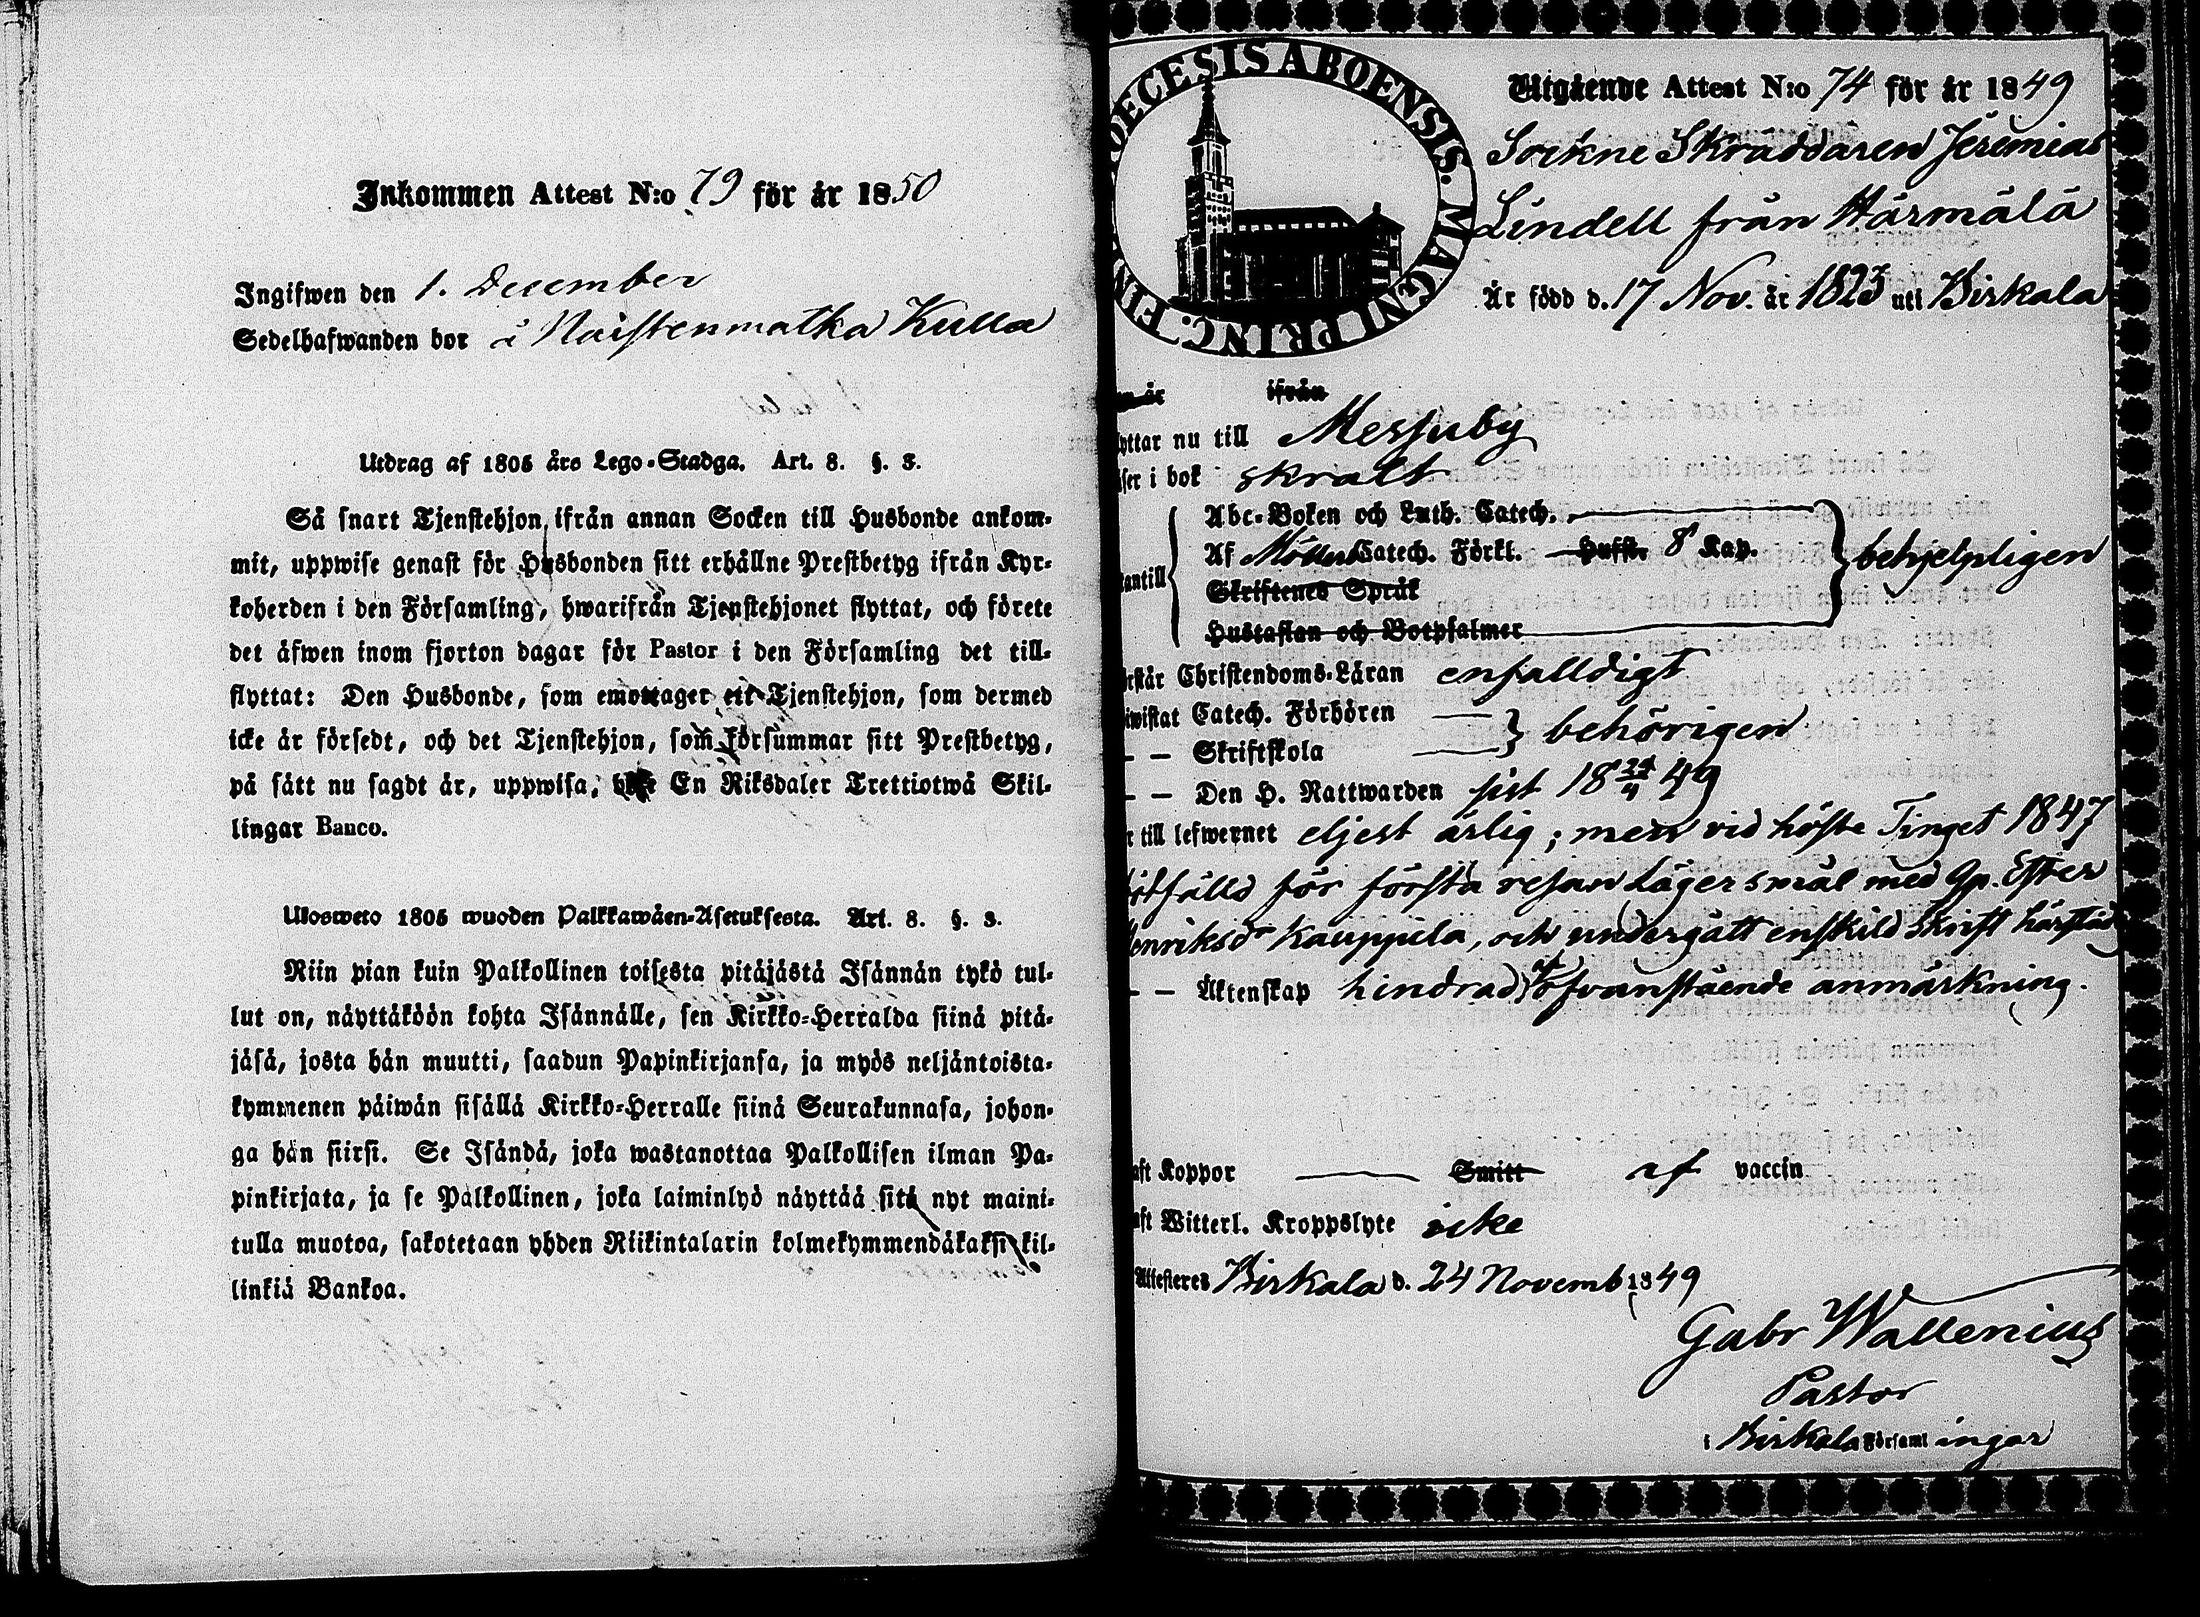 Inkommen Attest N:o 79 för år 1850
Ingifwen den 1. December
Sedelhafwanden bor å Naistenmatka Kulla
Utdrag af 1805 års Lego-Stadga. Art. 8. §. 3.
Så snart Tjenstehjon, ifrån annan Socken till Husbonde ankom-
mit, uppwise genast för Husbonden sitt erhållne Prestbetyg ifrån Kyr-
koherden i den Församling, hwarifrån Tjenstehjonet flyttat, och förete
det äfwen inom fjorton dagar för Pastor i den Församling det till-
flyttat: Den Husbonde, som emottager ett Tjenstehjon, som dermed
icke är försedt, och det Tjenstehjon, som försummar sitt Prestbetyg,
på sätt nu sagdt är, uppwisa, En Riksdaler Trettiotwå Skil-
lingar Banco.
Ulosweto 1805 wuoden Palkkawäen-Asetuksesta. Art. 8. §. 3.
Niin pian kuin Palkollinen toisesta pitäjästä Isännän tykö tul-
lut on, näyttäköön kohta Isännälle, sen Kirkko-Herralda siinä pitä-
jäsä, josta hän muutti, saadun Papinkirjansa, ja myös neljäntoista-
kymmenen päiwän sisällä Kirkko-Herralle siinä Seurakunnasa, johon-
ga hän siirsi. Se Isändä, joka wastanottaa Palkollisen ilman Pa-
pinkirjata, ja se Palkollinen, joka laiminlyö näyttää sitä nyt maini-
tulla muotoa, sakotetaan yhden Riikintalarin kolmekymmendäkaksi kil-
linkiä Bankoa.
DIOECESIS ABOENSIS. MAGNI PRINC. FIN
Utgående Attest N:o 74 för år 1849
Sockne Skräddaren Jeremias
Lindell från Härmälä
Är född d. 17 Nov. år 1823 uti Birkala
är ifrån
yttar nu till Messuby
ser i bok skralt
Abc-Boken och Luth. Catech.
Af Möllers Catech. Förkl. Hufst. 8 Kap.
antill behjelpligen
Skriftenes Språk
Hustaflan och Botpsalmer
rstår Christendoms-Läran enfalldigt
iwistat Catech. Förhören
behörigen
— — Skriftskola
— — Den H. Nattwarden sist 18 24/4 49
r till lefwernet eljest ärlig; men vid höste Tinget 1847
ötfälld för första resan Lägersmål med Gp. Ester
Henriksdr Kauppila, och undergått enskild Skrift
— — Äktenskap hindrad af ofvanstående anmärkning.
aft Koppor Smitt af vaccin
aft Witterl. Kroppslyte icke
Attesteres Birkala d. 24 Novemb 1849
Gabr Wallenius
Pastor
i Birkala Församl ingar